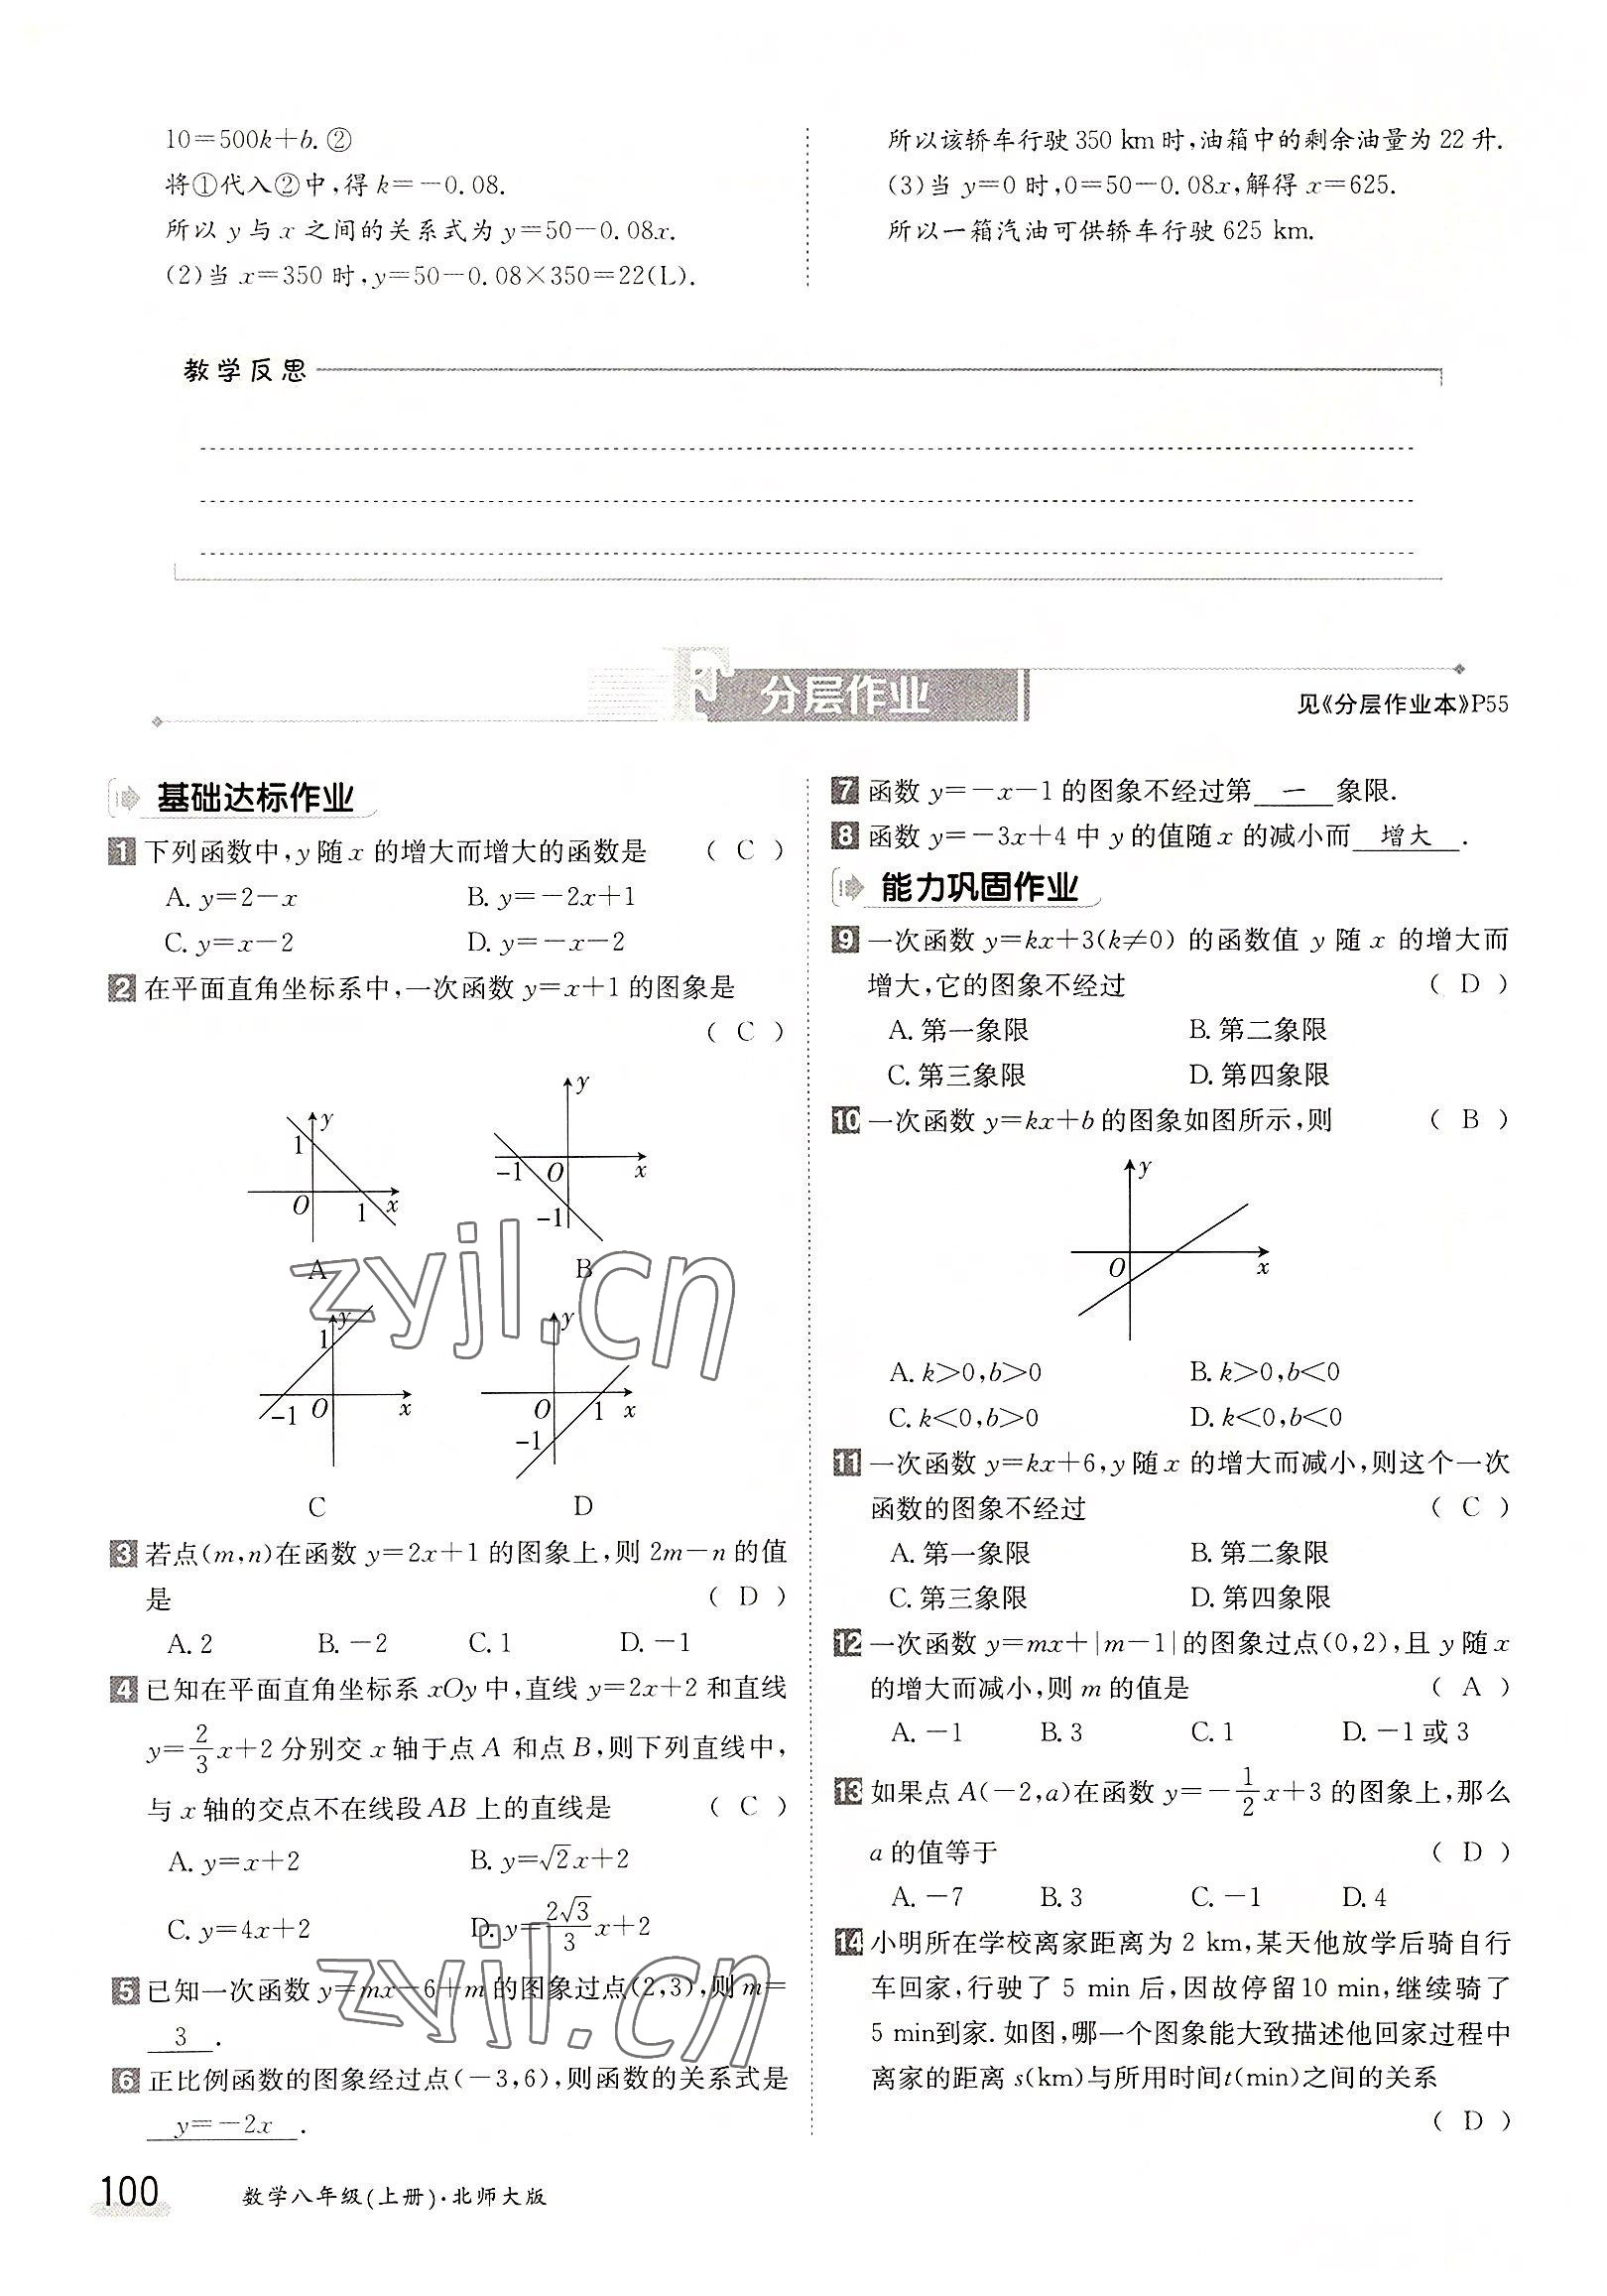 10=500k+b.②
将①代入②中,得 k=-0.08.
所以 y 与 x 之间的关系式为 y=50-0.08x.
(2)当 x=350 时,y=50-0.08×350=22(L).
所以该轿车行驶 350 km 时,油箱中的剩余油量为 22 升.
(3)当 y=0 时,0=50-0.08x,解得 x=625.
所以一箱汽油可供轿车行驶 625 km.
教学反思
分层作业
见《分层作业本》P55
基础达标作业
1 下列函数中,y 随 x 的增大而增大的函数是 ( C )
A. y=2-x B. y=-2x+1
C. y=x-2 D. y=-x-2
2 在平面直角坐标系中,一次函数 y=x+1 的图象是
( C )
y 1 O 1 x
A
y -1 O x -1
B
y 1 -1 O x
C
y O 1 x -1
D
3 若点(m,n)在函数 y=2x+1 的图象上,则 2m-n 的值
是 ( D )
A. 2 B. -2 C. 1 D. -1
4 已知在平面直角坐标系 xOy 中,直线 y=2x+2 和直线
y=2/3x+2 分别交 x 轴于点 A 和点 B,则下列直线中,
与 x 轴的交点不在线段 AB 上的直线是 ( C )
A. y=x+2 B. y=√2x+2
C. y=4x+2 D. y=2√3/3x+2
5 已知一次函数 y=mx-6+m 的图象过点(2,3),则 m=
3 .
6 正比例函数的图象经过点(-3,6),则函数的关系式是
y=-2x .
7 函数 y=-x-1 的图象不经过第 一 象限.
8 函数 y=-3x+4 中 y 的值随 x 的减小而 增大 .
能力巩固作业
9 一次函数 y=kx+3(k≠0) 的函数值 y 随 x 的增大而
增大,它的图象不经过 ( D )
A. 第一象限 B. 第二象限
C. 第三象限 D. 第四象限
10 一次函数 y=kx+b 的图象如图所示,则 ( B )
y O x
A. k>0,b>0 B. k>0,b<0
C. k<0,b>0 D. k<0,b<0
11 一次函数 y=kx+6,y 随 x 的增大而减小,则这个一次
函数的图象不经过 ( C )
A. 第一象限 B. 第二象限
C. 第三象限 D. 第四象限
12 一次函数 y=mx+|m-1|的图象过点(0,2),且 y 随 x
的增大而减小,则 m 的值是 ( A )
A. -1 B. 3 C. 1 D. -1 或 3
13 如果点 A(-2,a)在函数 y=-1/2x+3 的图象上,那么
a 的值等于 ( D )
A. -7 B. 3 C. -1 D. 4
14 小明所在学校离家距离为 2 km,某天他放学后骑自行
车回家,行驶了 5 min 后,因故停留10 min,继续骑了
5 min到家. 如图,哪一个图象能大致描述他回家过程中
离家的距离 s(km)与所用时间t(min)之间的关系
( D )
zyjl.cn
zyjl.cn
100 数学八年级(上册)·北师大版